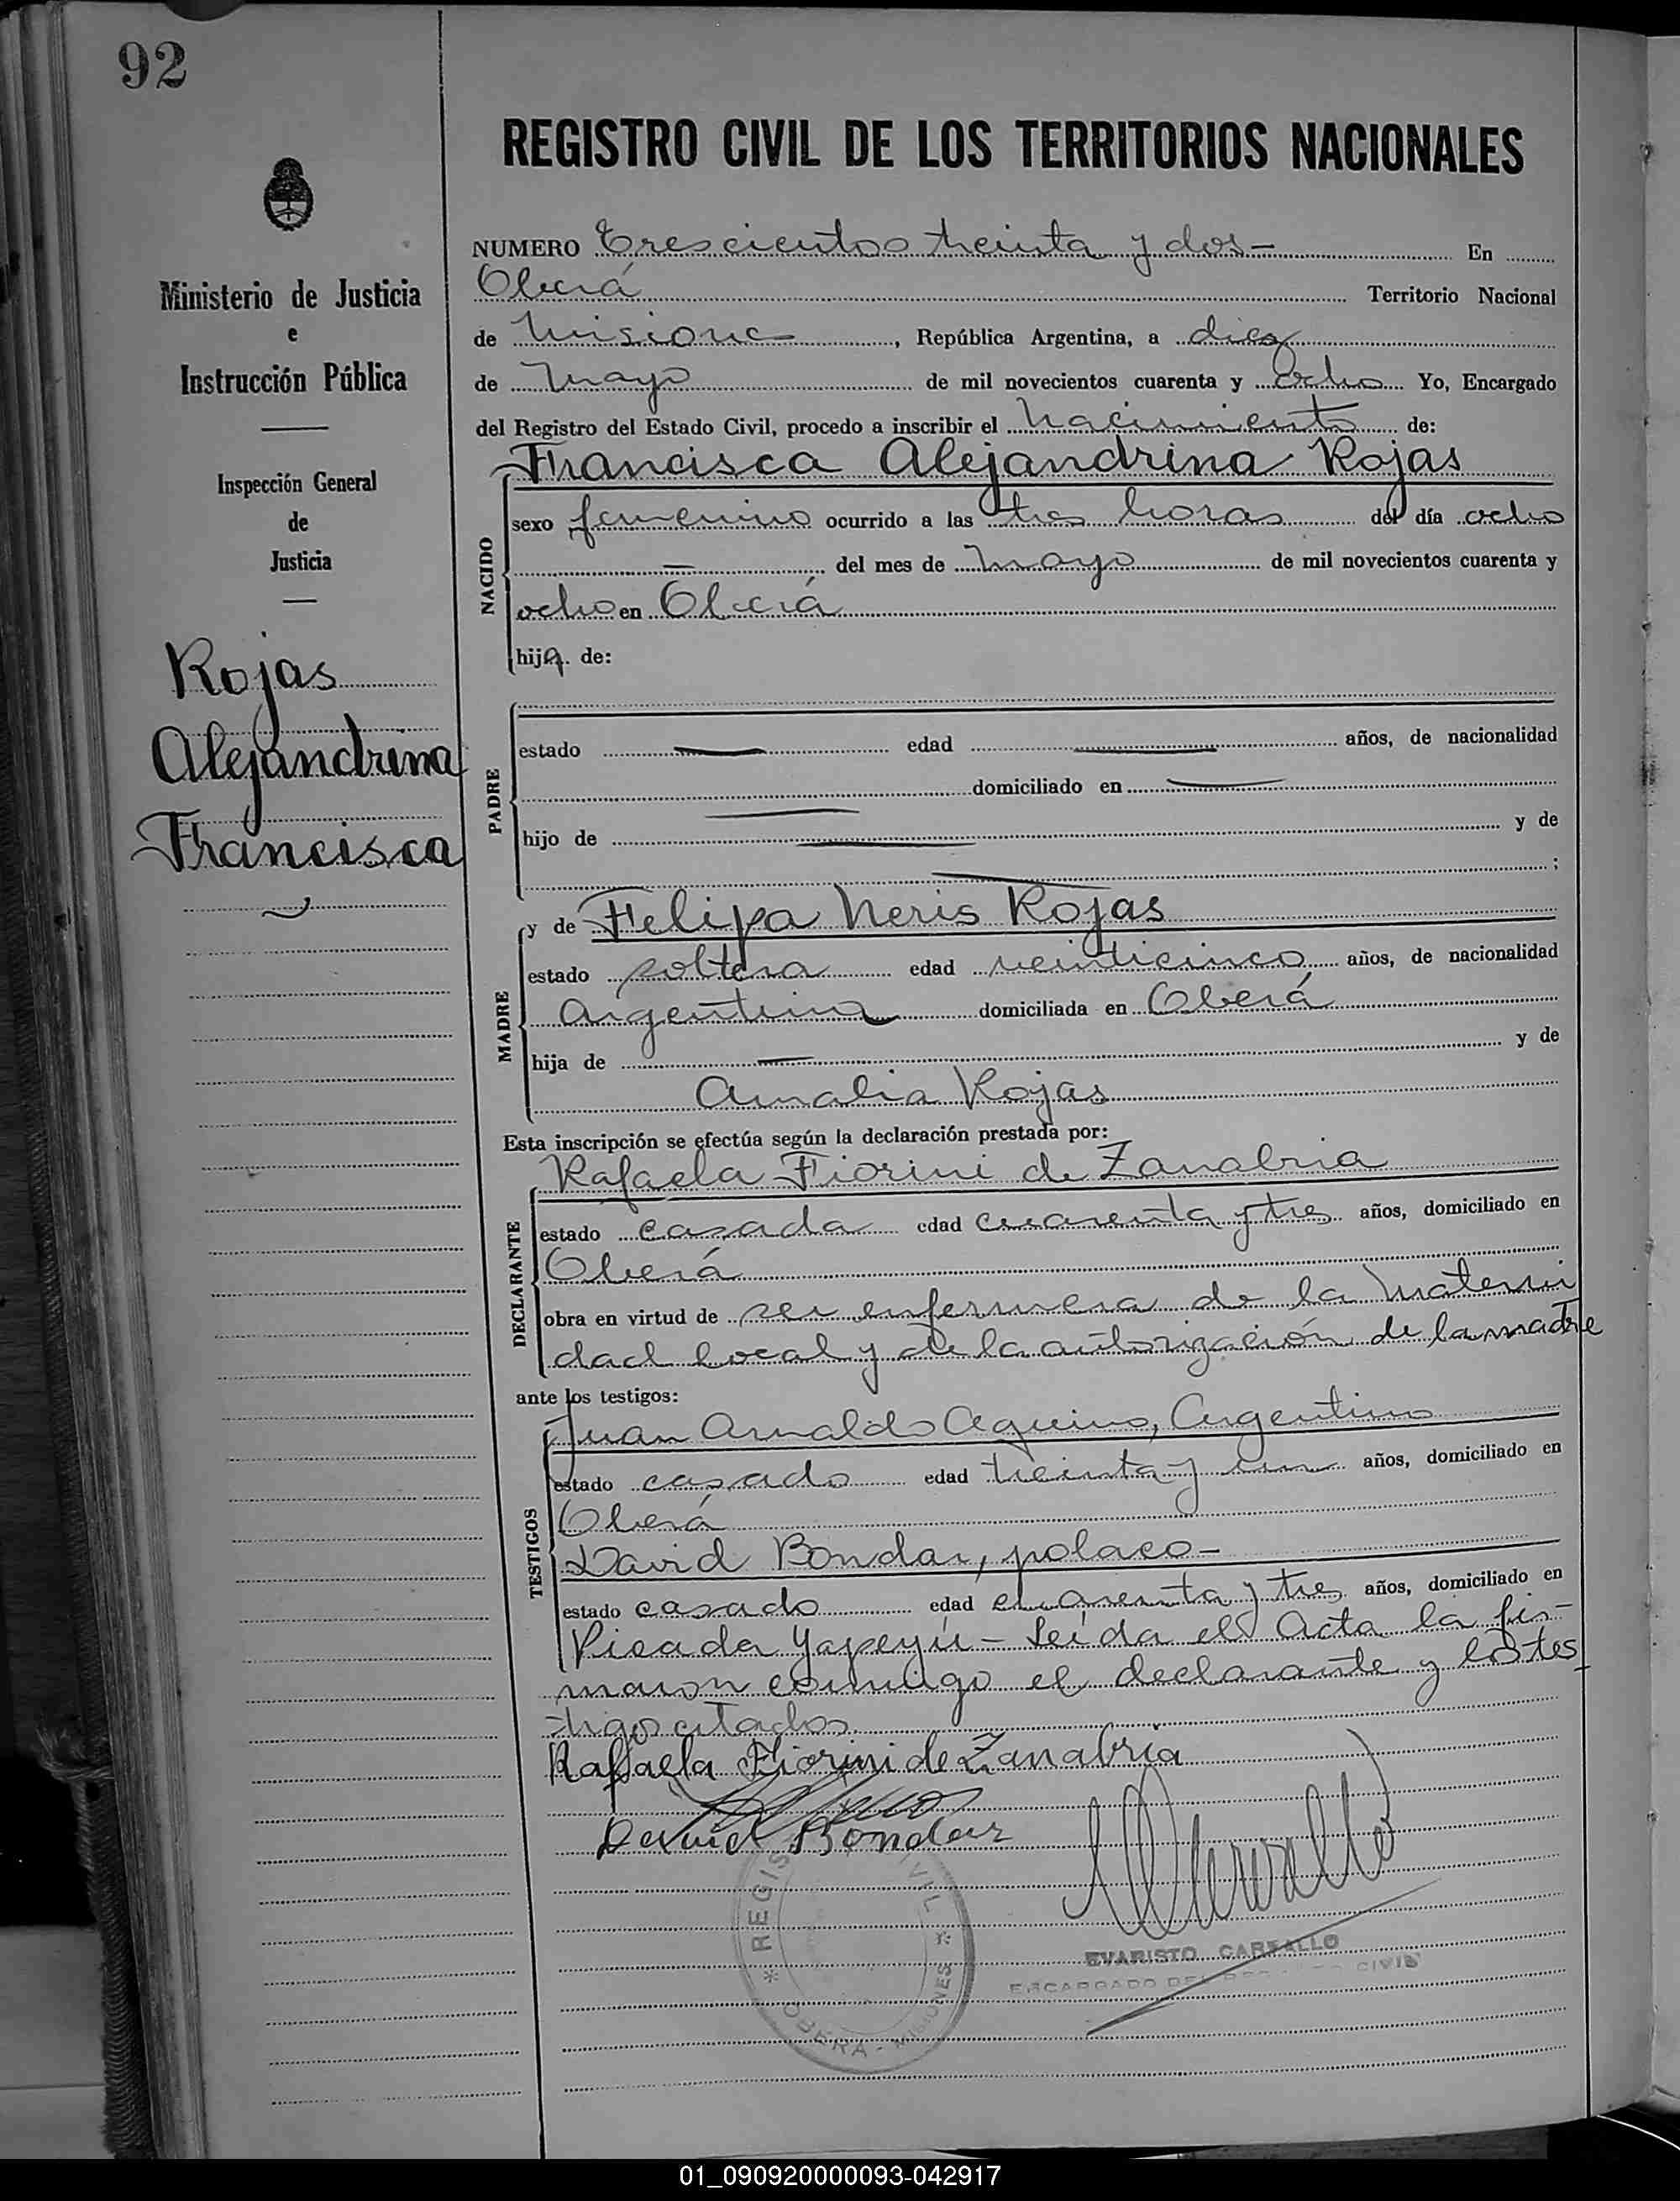 92
REGISTRO CIVIL DE LOS TERRITORIOS NACIONALES
Ministerio de Justicia
e
Instrucción Pública
Inspección General
de
Justicia
Rojas
Alejandrina
Francisca
NUMERO Trescientos treinta y dos — En
Oberá Territorio Nacional
de Misiones, República Argentina, a diez
de Mayo de mil novecientos cuarenta y ocho Yo, Encargado
del Registro del Estado Civil, procedo a inscribir el nacimiento de:
Francisca Alejandrina Rojas
NACIDO
sexo femenino ocurrido a las tres horas del día ocho
— del mes de Mayo de mil novecientos cuarenta y
ocho en Oberá
hija de:
PADRE
estado — edad — años, de nacionalidad
domiciliado en —
hijo de — y de
— ;
MADRE
y de Felipa Neris Rojas
estado soltera edad veinticinco años, de nacionalidad
Argentina domiciliada en Oberá
hija de — y de
Amalia Rojas
Esta inscripción se efectúa según la declaración prestada por:
Rafaela Fiorini de Zanabria
DECLARANTE
estado casada edad cuarenta y tres años, domiciliado en
Oberá
obra en virtud de ser enfermera de la Materni
dad local y de la autorización de la madre
ante los testigos:
TESTIGOS
Juan Arnaldo Aquino, Argentino
estado casado edad treinta y un años, domiciliado en
Oberá
David Bondar, polaco —
estado casado edad cuarenta y tres años, domiciliado en
Picada Yapeyú — Leída el Acta la fir-
maron conmigo el declarante y los tes
tigos citados
Raffaela Fiorini de Zanabria
David Bondar
REGIS VIL
OBERA - MISIONES
EVARISTO CARBALLO
ENCARGADO DEL REGISTRO CIVIL
01_090920000093-042917